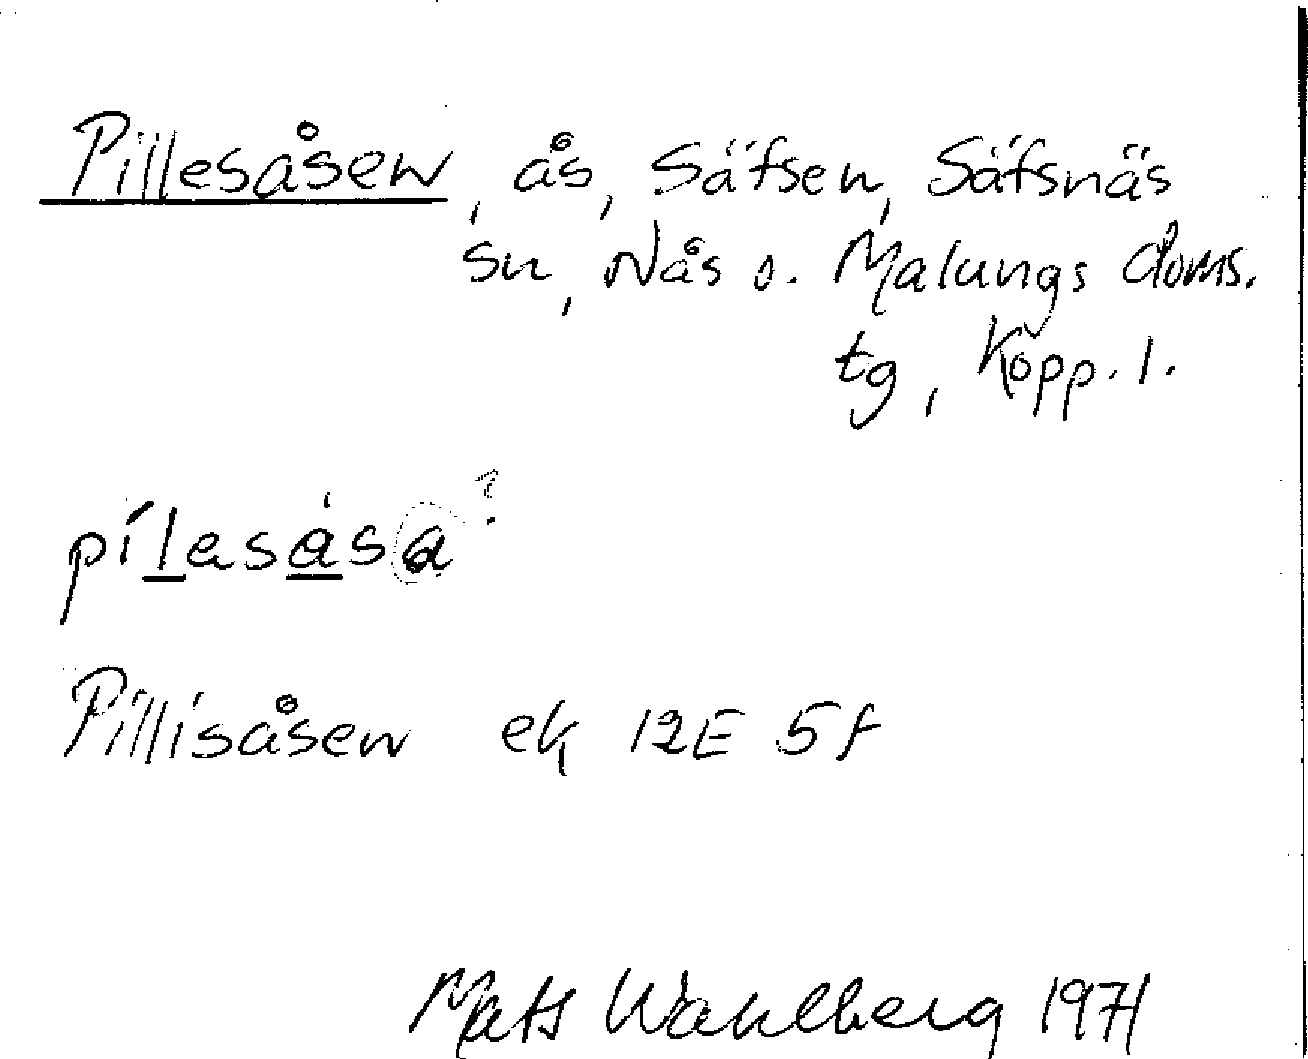 Pillesåsen, ås, Säfsen, Säfsnäs
sn, Nås o. Malungs doms.
tg, Kopp. l.
pílasása?
Pillisåsen ek 12E 5f
Mats Wahlberg 1971